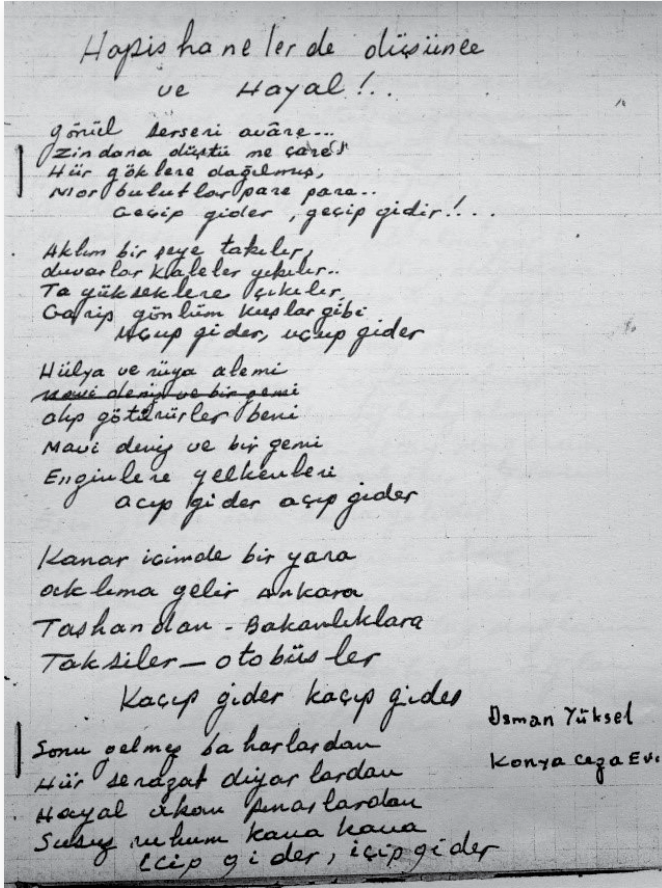 Hapishanelerde düşünce
ve Hayal!..
gönül serseri avâre...
Zindana düştü ne çare!
Hür göklere dağılmış,
Mor bulutlar pare pare..
Geçip gider, geçip gidir!...
Aklım bir şeye takılır,
duvarlar kaleler yıkılır..
Ta yükseklere çıkılır,
Garip gönlüm kuşlar gibi
Uçup gider, uçup gider
Hülya ve rüya alemi
mavi deniz ve bir gemi
alıp götürürler beni
Mavi deniz ve bir gemi
Enginlere yelkenleri
açıp gider açıp gider
Kanar içimde bir yara
aklıma gelir Ankara
Taşhandan - Bakanlıklara
Taksiler - otobüsler
Kaçıp gider kaçıp gider
Osman Yüksel
Konya Ceza Evi
Sonu gelmez baharlardan
Hür serazat diyarlardan
Hayal akan pınarlardan
Susuz ruhum kana kana
İçip gider, içip gider